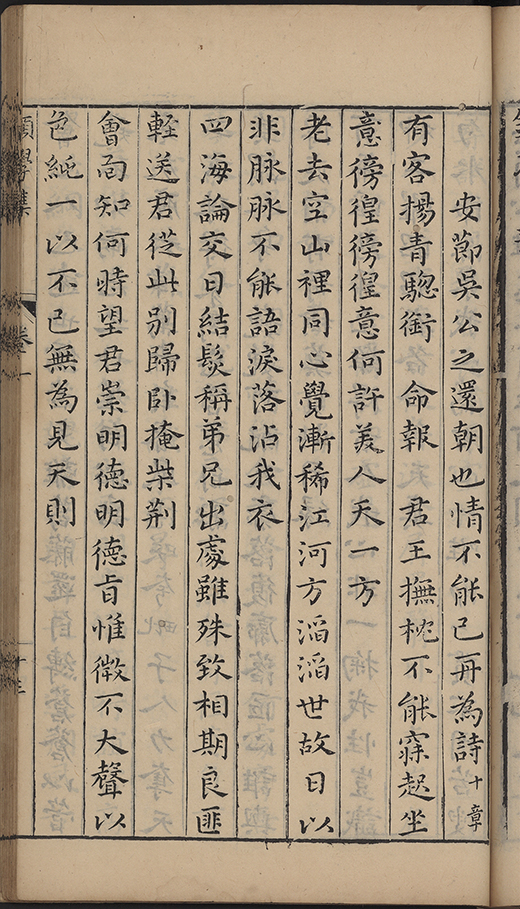 安節吳公之還朝也情不能已再為詩十章
有客揚青驄銜 命報 君王撫枕不能寐起坐
意徬徨徬徨意何許美人天一方
老去空山裡同心覺漸稀江河方滔滔世故日以
非脉脉不能語淚落沾我衣
四海論交日結髮稱弟兄出處雖殊致相期良匪
輕送君從此別歸卧掩柴荆
會面知何時望君崇明德明德旨惟微不大聲以
色純一以不已無為見天則